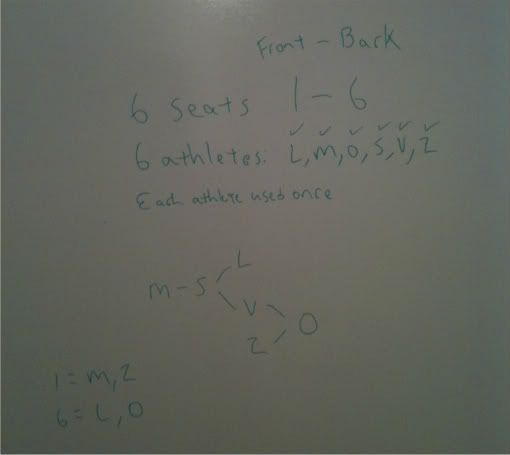 Front - Back
6 seats 1 - 6
6 athletes: L, M, O, S, V, Z
Each athlete used once
L
M - S
V
O
Z
1 = M, Z
6 = L, O